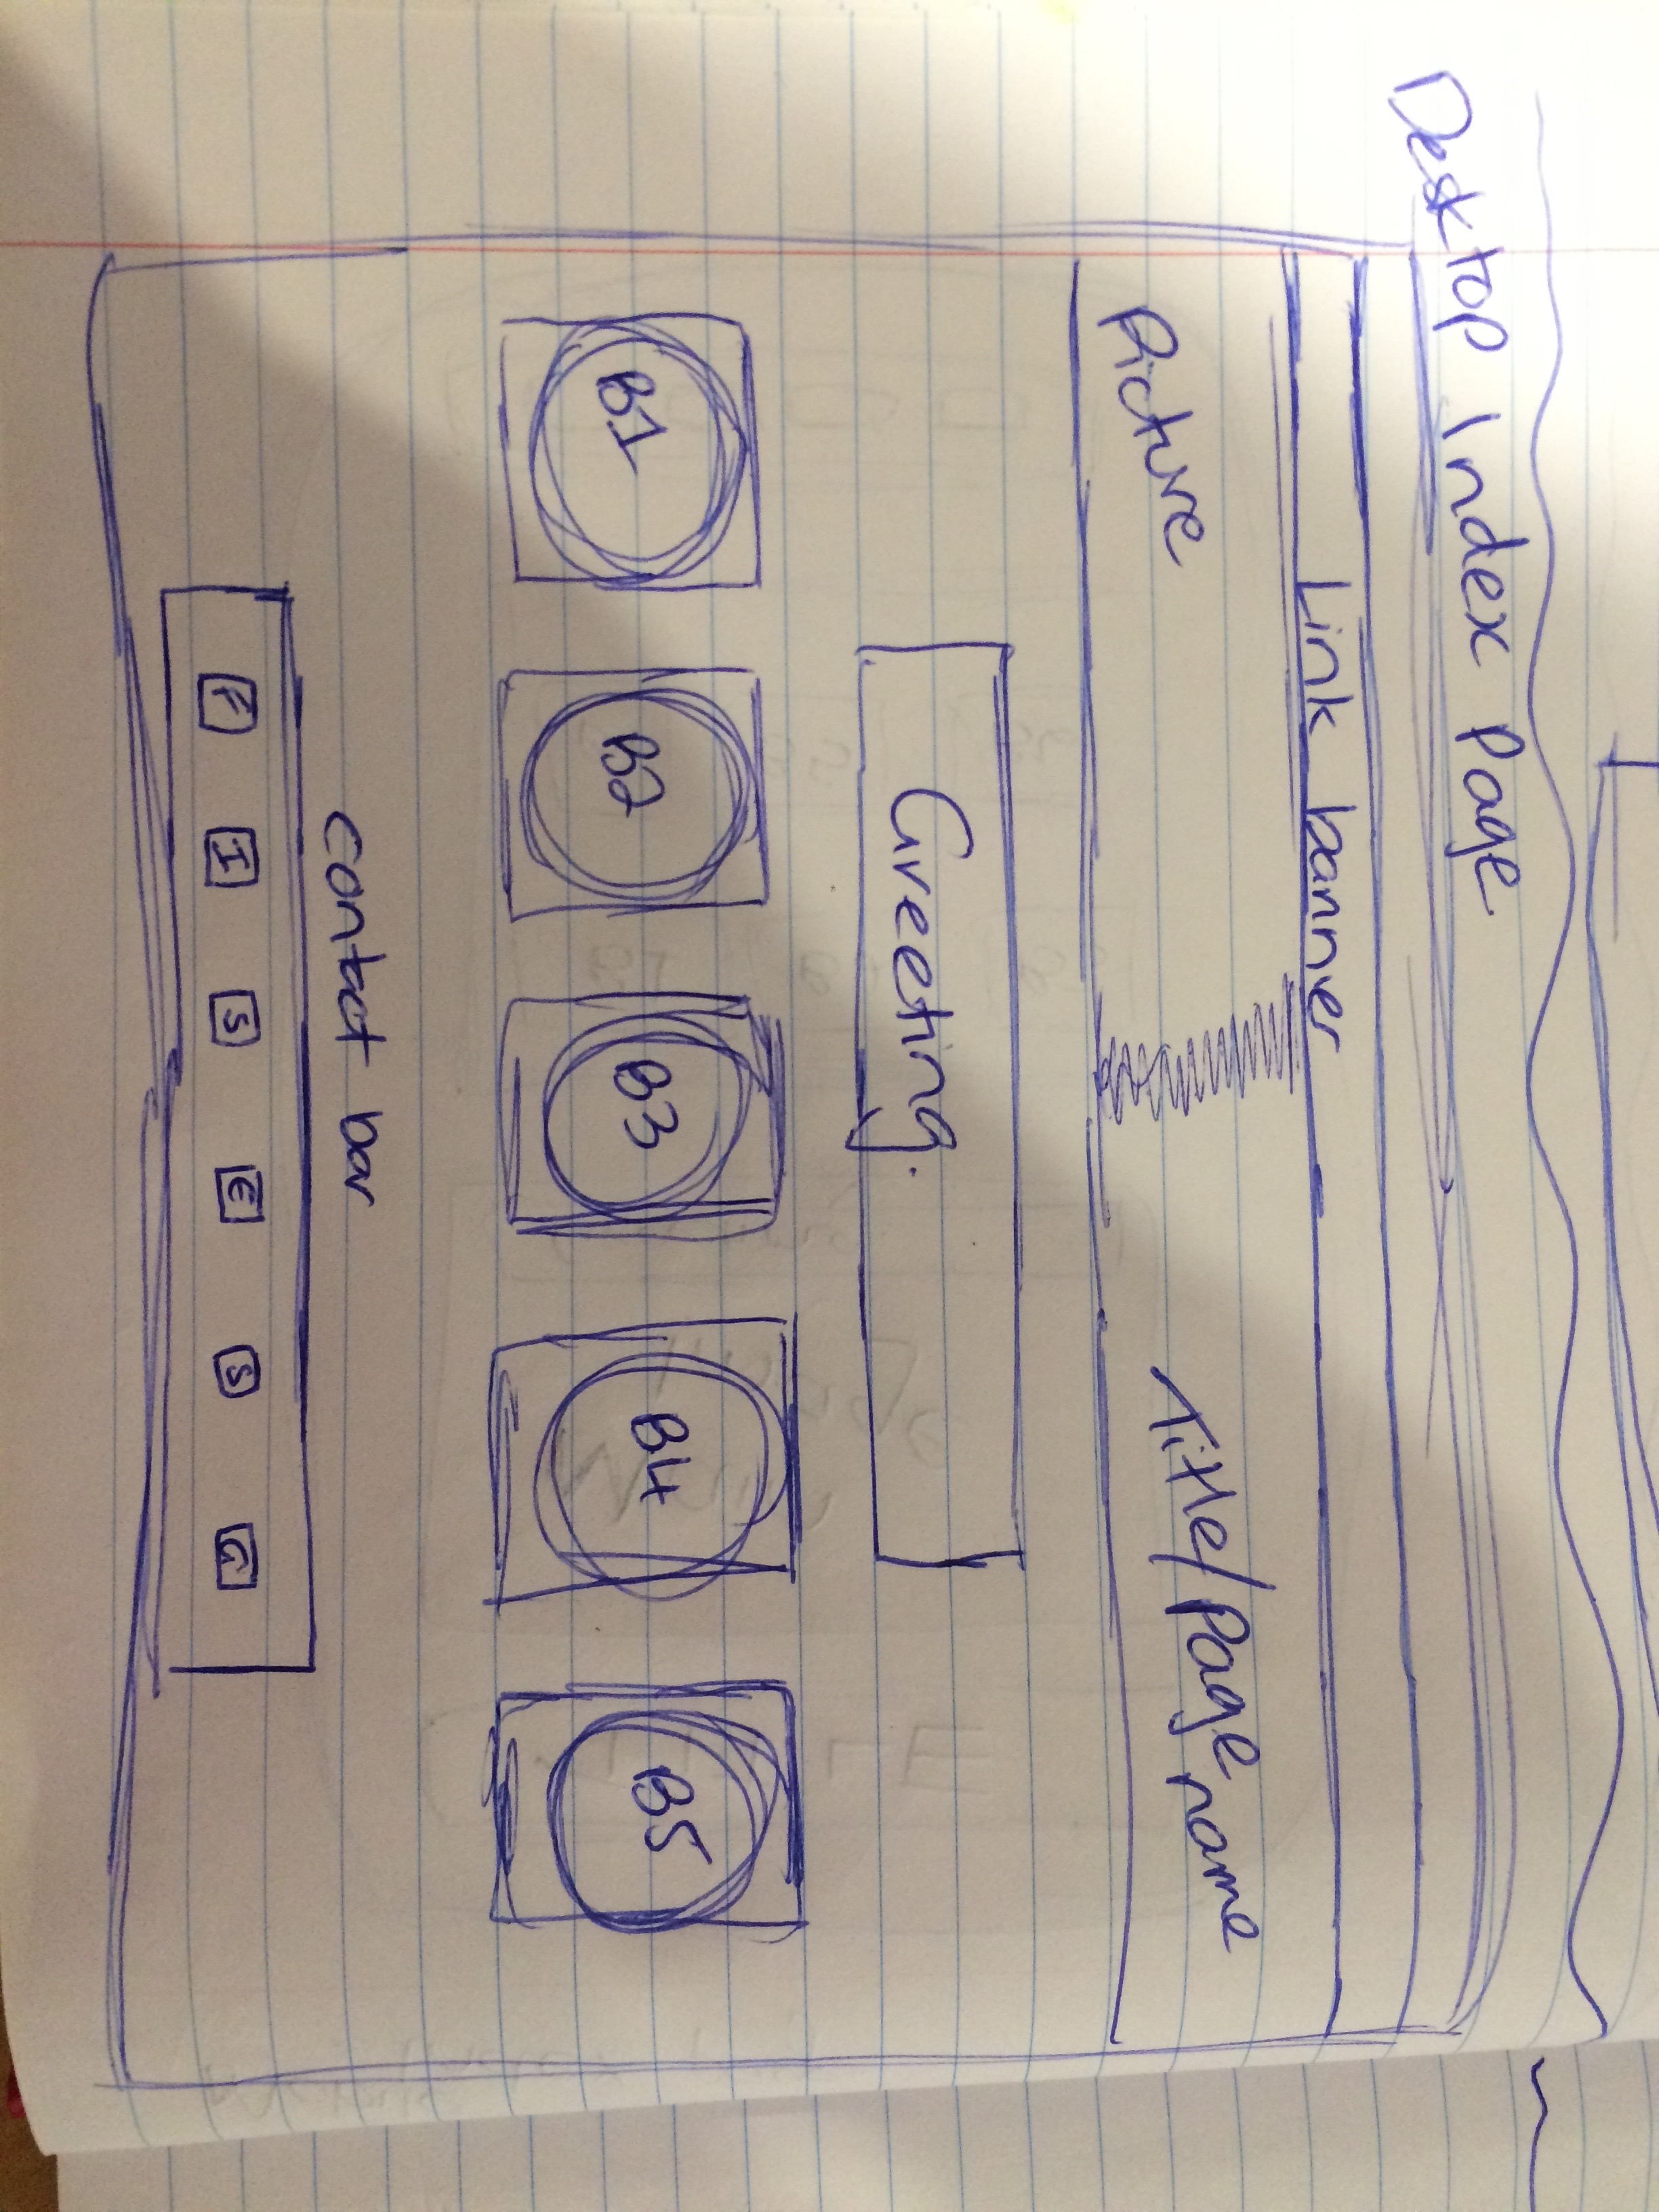 Desktop Index Page
Link banner
Picture Title/Page name
Greeting.
B1 B2 B3 B4 B5
contact bar
F I S E S G